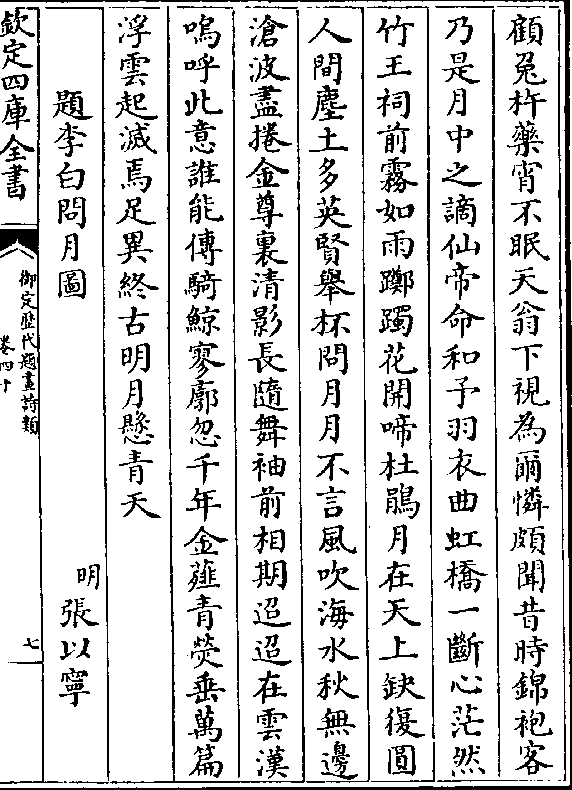 顧兔杵藥宵不眠天翁下視為爾憐頗聞昔時錦袍客
乃是月中之謫仙帝命和予羽衣曲虹橋一斷心茫然
竹王祠前霧如雨躑躅花開啼杜鵑月在天上缺復圓
人間塵土多英賢舉杯問月月不言風吹海水秋無邊
滄波盡捲金尊裏清影長隨舞袖前相期迢迢在雲漢
嗚呼此意誰能傳騎鯨寥廓忽千年金薤青熒垂萬篇
浮雲起滅焉足異終古明月懸青天
題李白問月圖 明 張以寧
欽定四庫全書
御定歷代題畫詩類
卷四十
七